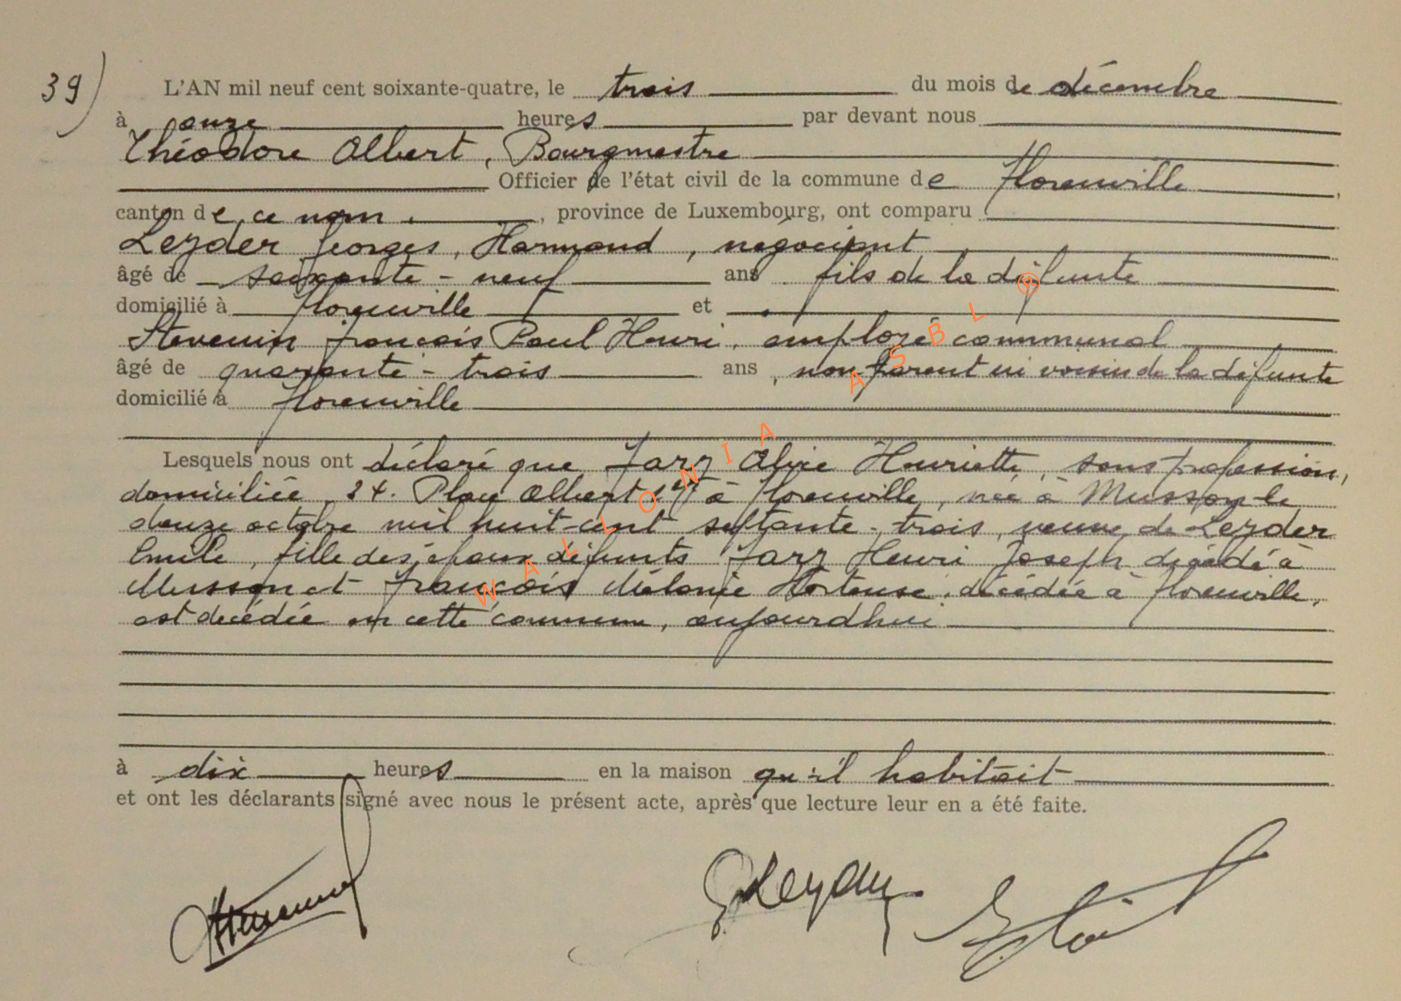 39)
L'AN mil neuf cent soixante-quatre, le trois du mois de décembre
à onze heures par devant nous
Théodore Albert, Bourgmestre
Officier de l'état civil de la commune de Florenville,
canton de ce nom, province de Luxembourg, ont comparu
Leyder Georges, Harmand, négociant
âgé de soixante-neuf ans fils de la défunte
domicilié à Florenville et
Stevenin François Paul Henri, employé communal
âgé de quarante-trois ans, non parent ni voisin de la défunte
domicilié à Florenville
Lesquels nous ont déclaré que Jarz Alice Henriette, sans profession,
domiciliée, 24. Place Albert 1er à Florenville, née à Musson le
douze octobre mil huit-cent septante-trois, veuve de Leyder
Emile, fille des époux défunts Jarz Henri Joseph décédé à
Musson et François Mélanie Hortense, décédée à Florenville,
est decédée en cette commune, aujourd'hui
à dix heures en la maison qu'il habitait
et ont les déclarants signé avec nous le présent acte, après que lecture leur en a été faite.
G. Leyder
WALLONIA ASBL ®